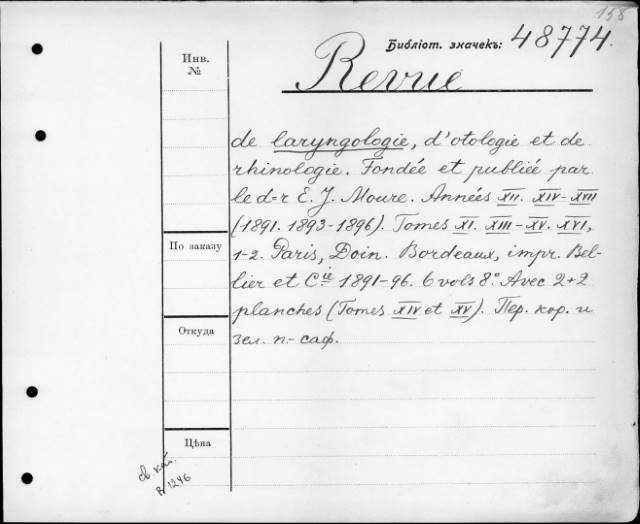 158
Библіот. значекъ: 48774.
Инв.
№
Revue
de laryngologie, d'otologie et de
rhinologie. Fondée et publiée par
le d=r E. J. Moure. Années XII. XIV-XVII
(1891. 1893-1896). Tomes XI. XIII-XV. XVI,
1-2. Paris, Doin. Bordeaux, impr. Bel-
lier et Cie 1891-96. 6 vols 8° Avec 2+2
planches (Tomes XIV et XV). Пер. кор. и
зел. п.- саф.
По заказу
Откуда
Цѣна
св кат.
R 1246